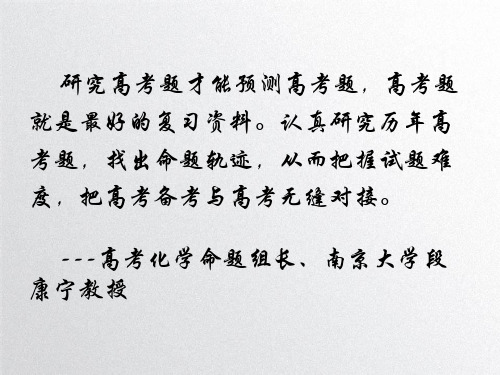 研究高考题才能预测高考题，高考题
就是最好的复习资料。认真研究历年高
考题，找出命题轨迹，从而把握试题难
度，把高考备考与高考无缝对接。
---高考化学命题组长、南京大学段
康宁教授